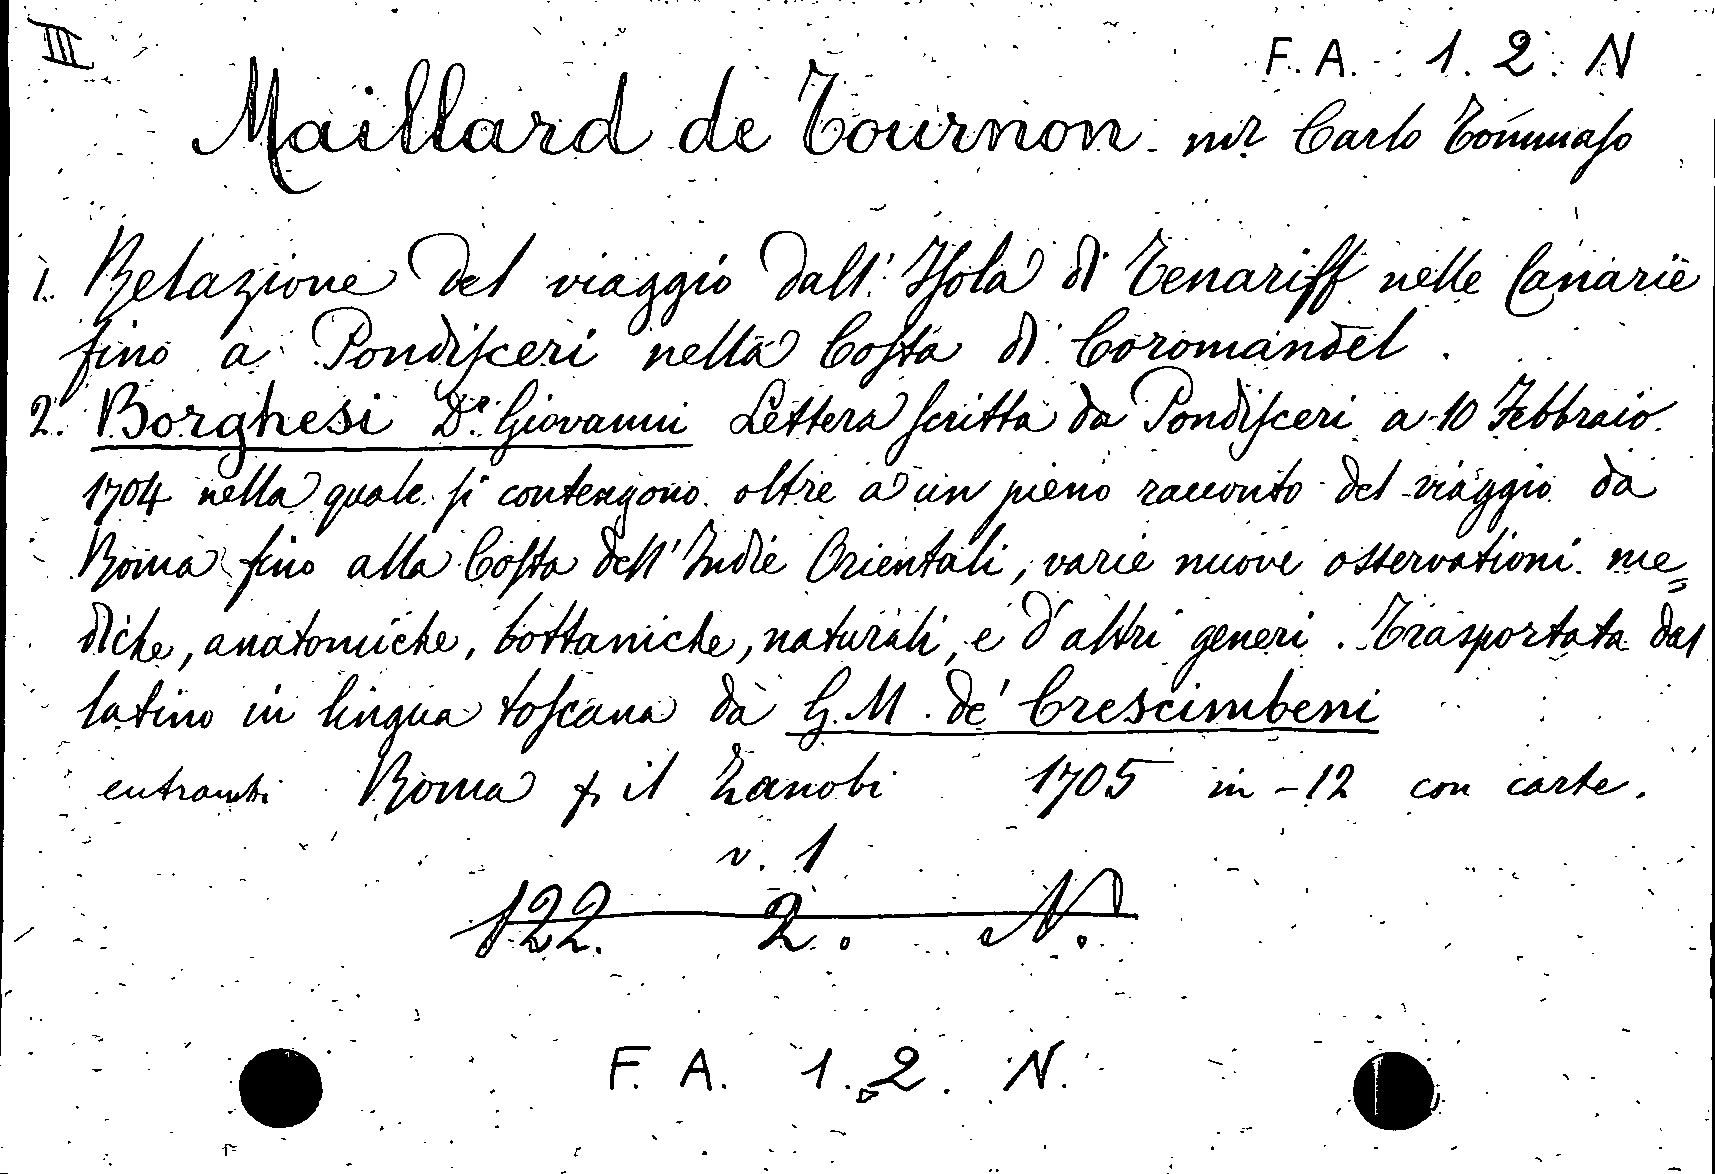 III
F. A. 1. 2. N
Maillard de Tournon mr Carlo Tommaso
1. Relazione del viaggio dall' Isola di Tenariff nelle Canarie
fino a Pondisceri nella Costa di Coromandel.
2. Borghesi Dr. Giovanni Lettera scritta da Pondisceri a 10 Febbraio
1704 nella quale si contengono oltre a un pieno racconto del viaggio da
Roma fino alla Costa dell'Indie Orientali, varie nuove osservationi me=
diche, anatomiche, bottaniche, naturali, e d'altri generi. Trasportata dal
latino in lingua toscana da G. M. de' Crescimbeni
entrambi Roma p. il Zanobi 1705 in-12 con carte.
v. 1
122. 2. N.
F. A. 1. 2. N.